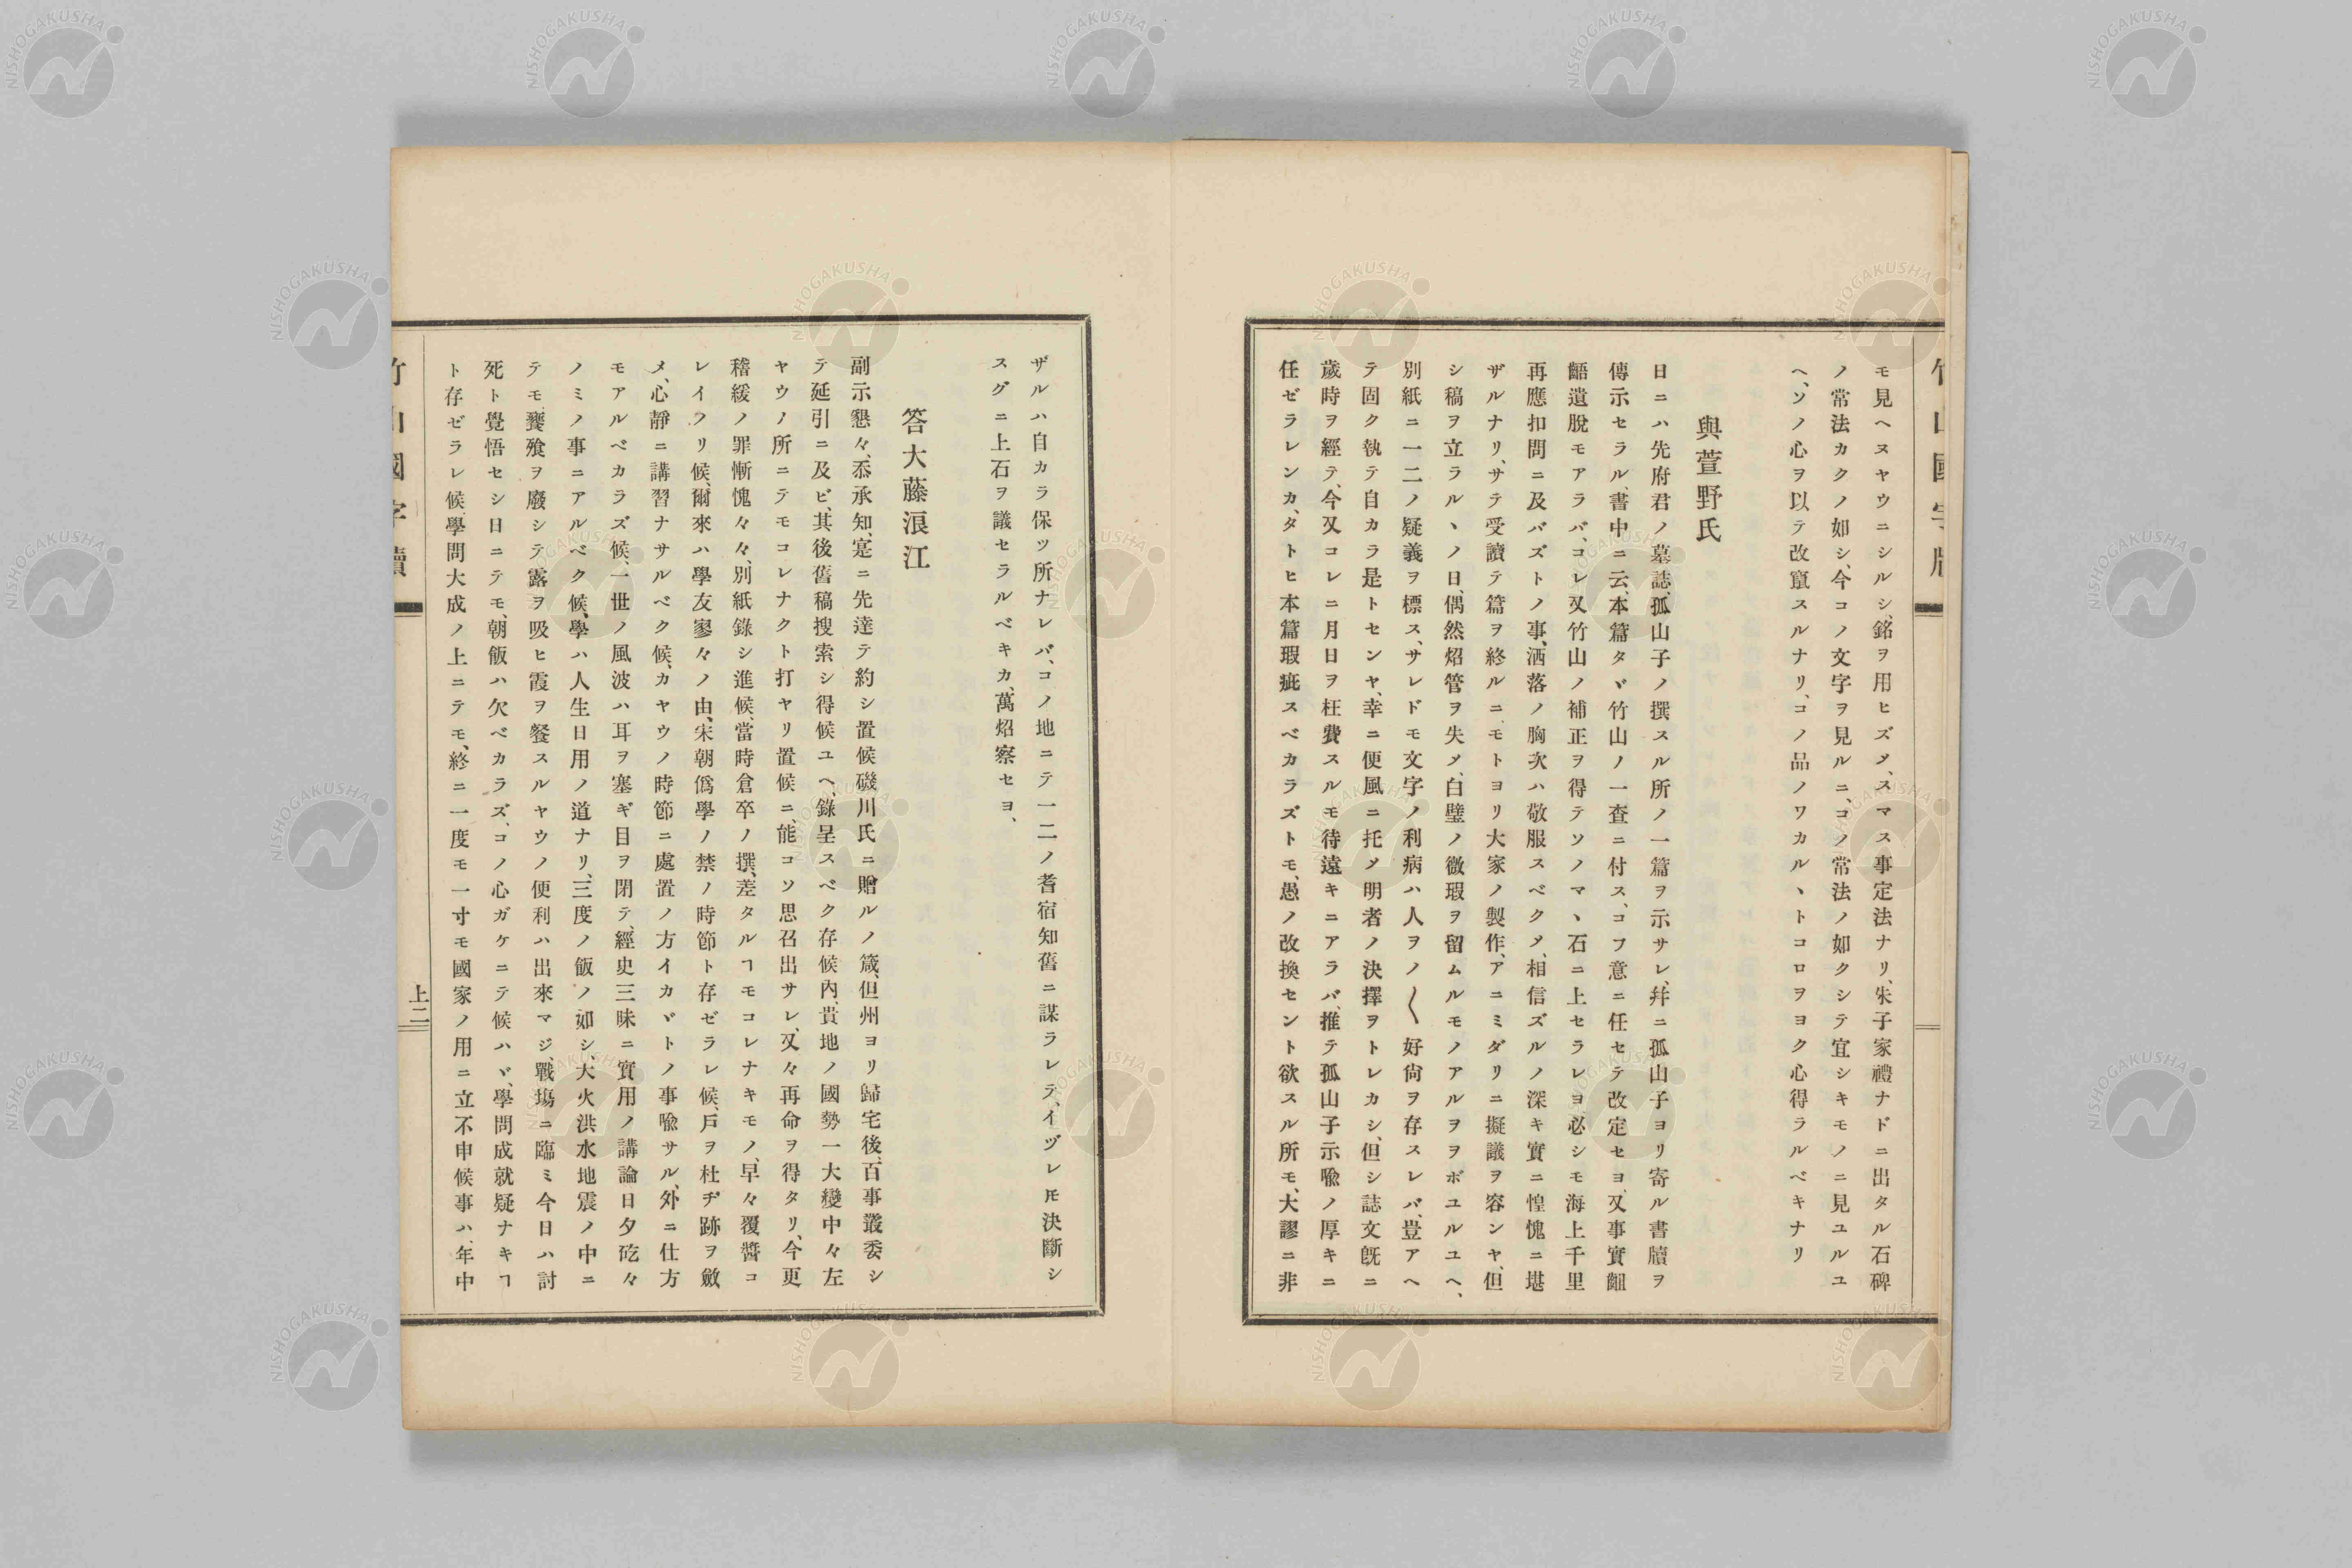 モ見ヘヌヤウニシルシ、銘ヲ用ヒズメ、スマス事定法ナリ、朱子家禮ナドニ出タル石碑
ノ常法カクノ如シ、今コノ文字ヲ見ルニ、コノ常法ノ如クシテ宜シキモノニ見ユルユ
ヘ、ソノ心ヲ以テ改竄スルナリ、コノ品ノワカルヽトコロヲヨク心得ラルベキナリ
與萱野氏
日ニハ先府君ノ墓誌、孤山子ノ撰スル所ノ一篇ヲ示サレ、幷ニ孤山子ヨリ寄ル書牘ヲ
傳示セラル、書中ニ云、本篇タヾ竹山ノ一査ニ付ス、コフ意ニ任セテ改定セヨ、又事實齟
齬遺脫モアラバ、コレ又竹山ノ補正ヲ得テソノマヽ石ニ上セラレヨ、必シモ海上千里
再應扣問ニ及バズトノ事、洒落ノ胸次ハ敬服スベクメ、相信ズルノ深キ實ニ惶愧ニ堪
ザルナリ、サテ受讀テ篇ヲ終ルニ、モトヨリ大家ノ製作、アニミダリニ擬議ヲ容ンヤ、但
シ稿ヲ立ラルヽノ日、偶然炤管ヲ失メ、白璧ノ微瑕ヲ留ムルモノアルヲヲボユルユヘ、
別紙ニ一二ノ疑義ヲ標ス、サレドモ文字ノ利病ハ人ヲノ〱好尙ヲ存スレバ、豈アヘ
テ固ク執テ自カラ是トセンヤ、幸ニ便風ニ托メ明者ノ決擇ヲトレカシ、但シ誌文旣ニ
歲時ヲ經テ、今又コレニ月日ヲ枉費スルモ待遠キニアラバ、推テ孤山子示喩ノ厚キニ
任ゼラレンカ、タトヒ本篇瑕疵スベカラズトモ、愚ノ改換セント欲スル所モ、大謬ニ非
ザルハ自カラ保ツ所ナレバ、コノ地ニテ一二ノ耆宿知舊ニ謀ラレテ、イヅレ𪜈決斷シ
スグニ上石ヲ議セラルベキカ、萬炤察セヨ、
答大藤浪江
副示懇々、忝承知、寔ニ先達テ約シ置候磯川氏ニ贈ルノ箴、但州ヨリ歸宅後、百事叢委シ
テ延引ニ及ビ、其後舊稿搜索シ得候ユヘ、錄呈スベク存候內、貴地ノ國勢一大變中々左
ヤウノ所ニテモコレナクト打ヤリ置候ニ、能コソ思召出サレ、又々再命ヲ得タリ、今更
稽緩ノ罪慚愧々々、別紙錄シ進候、當時倉卒ノ撰、差タルヿモコレナキモノ、早々覆醬コ
レイノリ候、爾來ハ學友寥々ノ由、宋朝僞學ノ禁ノ時節ト存ゼラレ候、戶ヲ杜ヂ跡ヲ斂
メ、心靜ニ講習ナサルベク候、カヤウノ時節ニ處置ノ方イカヾトノ事喩サル、外ニ仕方
モアルベカラズ候、一世ノ風波ハ耳ヲ塞ギ目ヲ閉テ、經史三昧ニ實用ノ講論日夕矻々
ノミノ事ニアルベク候、學ハ人生日用ノ道ナリ、三度ノ飯ノ如シ、大火洪水地震ノ中ニ
テモ、饔飧ヲ廢シテ露ヲ吸ヒ霞ヲ餐スルヤウノ便利ハ出來マジ、戰塲ニ臨ミ今日ハ討
死ト覺悟セシ日ニテモ、朝飯ハ欠ベカラズ、コノ心ガケニテ候ハヾ、學問成就疑ナキヿ
ト存ゼラレ候、學問大成ノ上ニテモ、終ニ一度モ一寸モ國家ノ用ニ立不申候事ハ、年中
上二